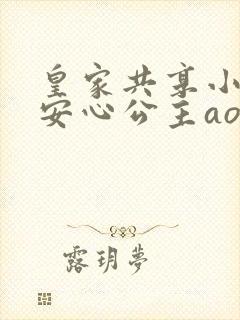 皇家共享小
安心公主ao
露玥夢